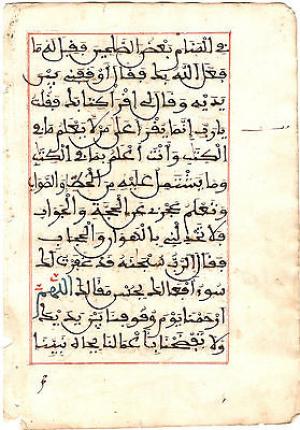 في المنام بعض الصلحين فقيل له ما
فعل الله بك فقال أوقفني بين
يديه وقال لي اقرأ كتابك فقلت
يا رب إنما يقرأ على من لا يعلم ما في
الكتب وأنت أعلم بما في الكتب
وما يشتمل عليه من الخطإ والصواب
وتعلم عجزي عن الحجة والجواب
فلا تخذلني بالهوان والحجاب
فقال الرب سبحنه قد غفرت لك
سوء أفعالك بحسن مقالك اللهم
ارحمنا يوم وقوفنا بين يديك
ولا تفضحنا بأعمالنا بيننا